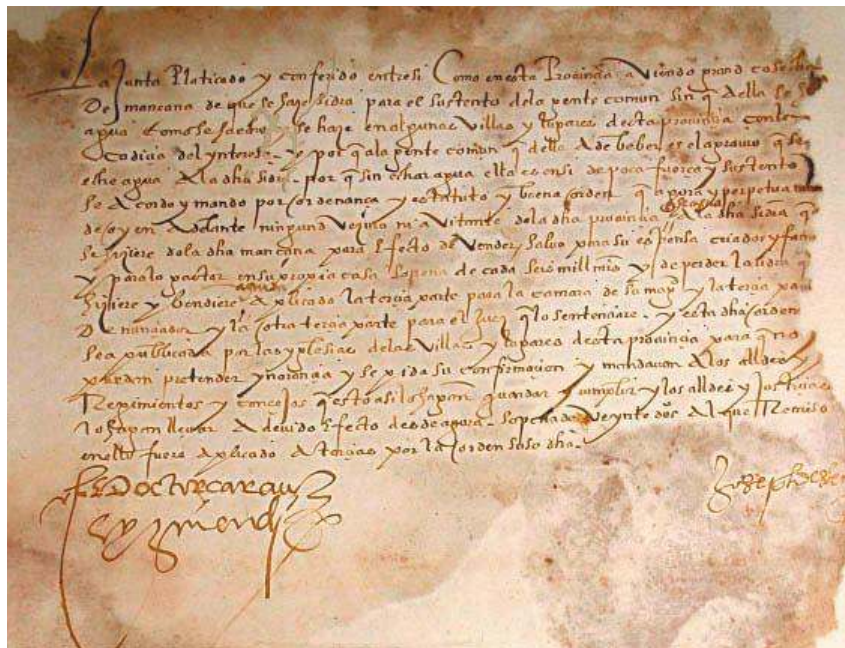 La Junta Platicado y conferido entresi Como en esta Provinçia aViendo grand cosecha
De mançana de que se haze sidra para el sustento dela gente comun sin q̃ della se
agua Como se ha echo y se haze en algunas Villas y lugares desta provinçia con la
Codiçia del ynterese y por q̃ ala gente comun q̃ della A de beber es el agravio q̃ se
eche agua A la dha sidra por q̃ sin echar agua ella es en si de poca fuerça y sustento
se Acordo y mando por ordenança y estatuto y buena orden q̃ agora y perpetua mente
de oy en Adelante ningund Vezino ni aVitante dela dha provinçia eche agua A la dha sidra q̃
se hiziere dela dha mançana para Efecto de Vender Salvo para su espensa criados y
y para lo gastar en su propia casa sopena de cada seis mill mrs y de perder la sidra q̃
hiziere y Vendiere aguada Aplicado la terçia parte para la camara de su magd y la terçia para
Denunçiador y la otra terçia parte para el Juez q̃ lo sentençiare y esta dha orden
sea publicada por las yglesias delas Villas y lugares desta provinçia para q̃ no
puedan pretender ynorançia y se pida su confirmaçion y mandaron A los alldes y
Regimientos y conçejos q̃ esto asi lo hagan guardar y cumplir y los alldes y Justiçias
lo hagan llevar A devido Efecto desde agora sopena de Veynte dos Al que Remiso
en ello fuere Aplicado A terçias por la orden suso dha
El Doctor